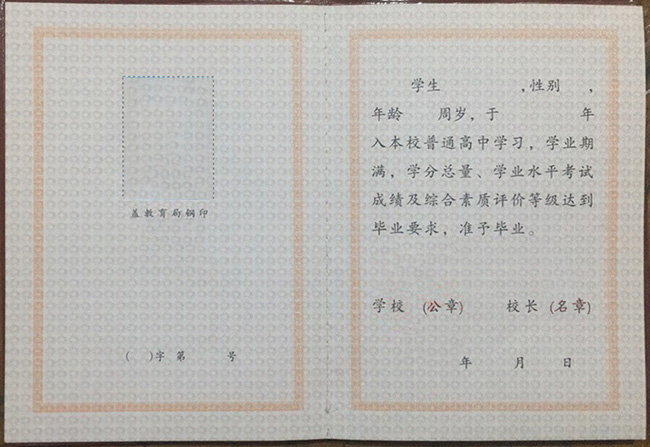 盖教育局钢印
( )字 第 号
学生 ,性别 ,
年龄 周岁,于 年
入本校普通高中学习,学业期
满,学分总量、学业水平考试
成绩及综合素质评价等级达到
毕业要求,准予毕业。
学校 (公章) 校长 (名章)
年 月 日